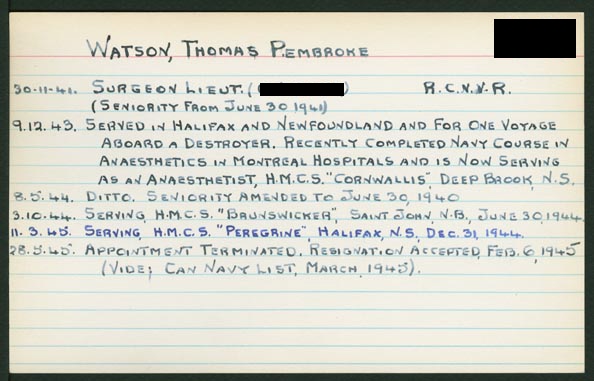 WATSON, THOMAS PEMBROKE
30-11-41. SURGEON LIEUT. ( ) R.C.N.V.R.
(SENIORITY FROM JUNE 30 1941)
9.12.43. SERVED IN HALIFAX AND NEWFOUNDLAND AND FOR ONE VOYAGE
ABOARD A DESTROYER. RECENTLY COMPLETED NAVY COURSE IN
ANAESTHETICS IN MONTREAL HOSPITALS AND IS NOW SERVING
AS AN ANAESTHETIST, H.M.C.S. "CORNWALLIS", DEEP BROOK, N.S.
8.5.44. DITTO. SENIORITY AMENDED TO JUNE 30, 1940
3.10.44. SERVING, H.M.C.S. "BRUNSWICKER", SAINT JOHN, N.B., JUNE 30, 1944.
11.3.45. SERVING, H.M.C.S. "PEREGRINE", HALIFAX, N.S., DEC. 31, 1944.
28.5.45. APPOINTMENT TERMINATED. RESIGNATION ACCEPTED, FEB. 6, 1945
(VIDE; CAN NAVY LIST, MARCH, 1945).